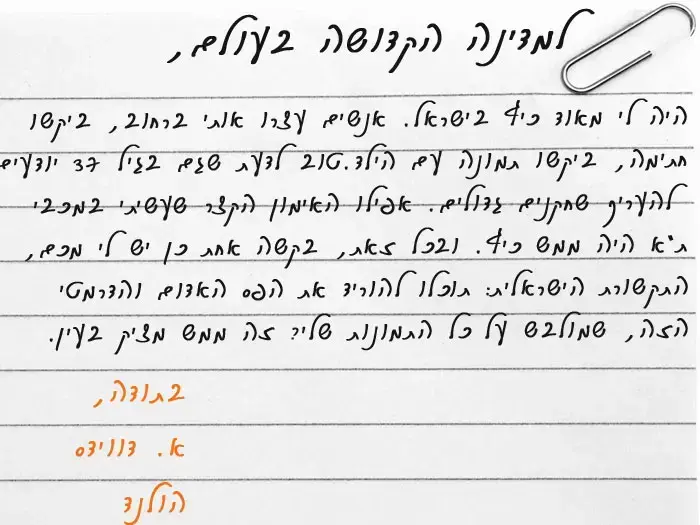 למדינה הקדושה בעולם,
היה לי מאוד כיף בישראל. אנשים עצרו אותי ברחוב, ביקשו
חתימה, ביקשו תמונה עם הילד. טוב לדעת שגם בגיל 37 יודעים
להעריף שחקנים גדולים. אפילו האימון הקצר שעשיתי במכבי
ת"א היה ממש כיף. ובכל זאת, בקשה אחת כן יש לי מכם,
התקשורת הישראלית: תוכלו להוריד את הפס האדום והדרמטי
הזה, שמולבש על כל התמונות שלי? זה ממש מציק בעין.
בתודה,
א. דווידס
הולנד